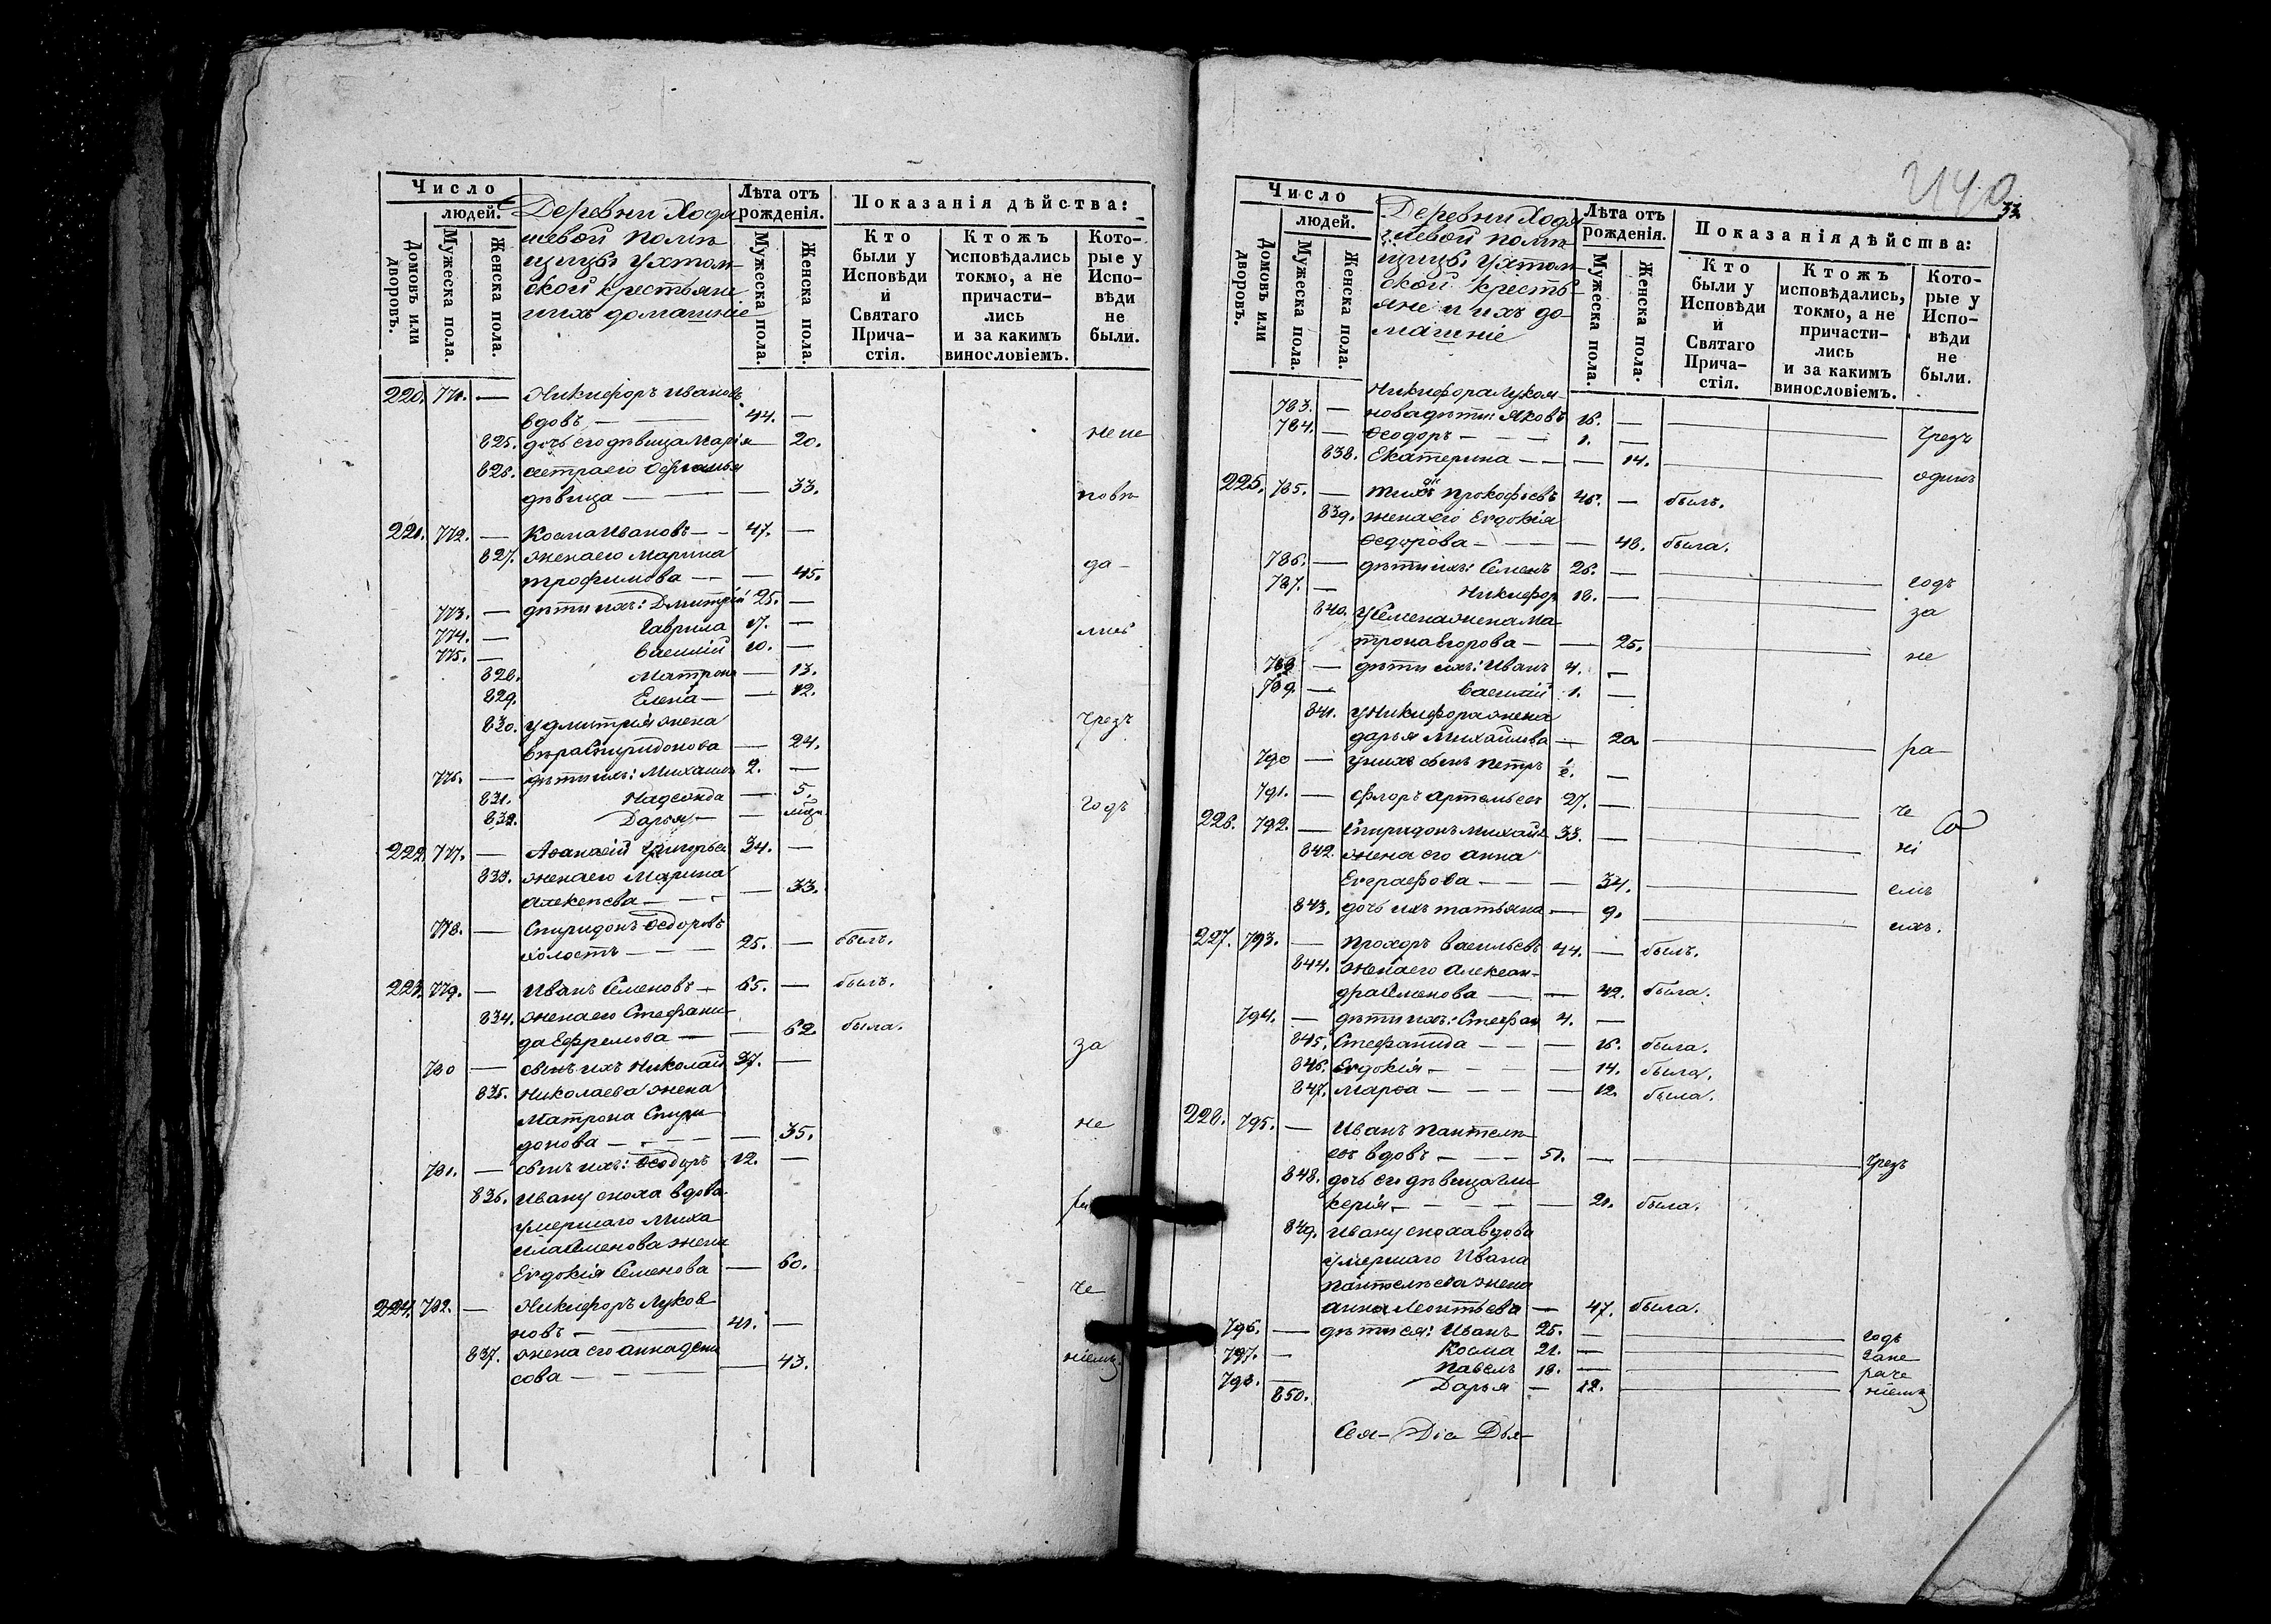 Число
людей.
Домовъ или дворовъ.
Мужеска пола.
Женска пола.
Деревни Ходя
шевой помѣ
щицы Ухтом
ской крестьяне
и ихъ домашніе
Лѣта отъ рожденія.
Мужеска пола.
Женска пола.
Показанія дѣйства:
Кто были у Исповѣди и Святаго Прича- стія.
Ктожъ исповѣдались токмо, а не причасти- лись и за какимъ винословіемъ.
Кото- рые у Испо- вѣди не были.
220. 771. — Никифоръ Ивановъ
вдовъ — 44. —
825. дочь его дѣвица Марія — 20.
826. сестра его
дѣвица — — 33.
221. 772. — Косма Ивановъ — 47. —
827. жена его Марина
Трофимова — — 45. да
773. — дѣти ихъ: Дмитрій 25. —
774. — Гаврила 17. —
775. — Василій 10. —
828. Матрона — 13.
829. Елена — — 12.
830. у Дмитрія жена чрезъ
Вѣра Спиридонова — 24.
776. — дѣти ихъ: Михаилъ 2. —
831. Надежда — 5. годъ
832. Дарья — —
222. 777. — Аѳанасій Григорьев 34. —
833. жена его Марина
Алексѣева — — 33.
778. — Спиридонъ Ѳедоровъ
холостъ — 25. — былъ.
223. 779. — Иванъ Семеновъ — 65. — былъ.
834. жена его Стефани
да Ефремова — — 62. была.
780 — сынъ ихъ Николай 37. — за
835. Николаева жена
Матрона Спири
донова — — 35. не
781. — сынъ ихъ: Ѳеодоръ 12. —
836. Ивану сноха вдова
умершаго Миха
ила Семенова жена
Евдокія Семенова — 60.
224. 782. — Никифоръ Луков че
новъ — 41. —
837. жена его Анна Дени
сова — — 43. ніемъ
33
Число
людей.
Домовъ или дворовъ.
Мужеска пола.
Женска пола.
Деревни Ходя
шевой помѣ
щицы Ухтом
ской кресть
яне и ихъ до
машніе
Лѣта отъ рожденія.
Мужеска пола.
Женска пола.
Показанія дѣйства:
Кто были у Исповѣди и Святаго Прича- стія.
Ктожъ исповѣдались, токмо, а не причасти- лись и за какимъ винословіемъ.
Кото- рые у Испо- вѣди не были.
Никифора Лукоя
783. — нова дѣти: Яковъ 16. — чрезъ
784. — Ѳеодоръ — 1. —
838. Екатерина — — 14. одинъ
225. 785. — Прокофьевъ 46. — былъ.
839. жена его Евдокія
Ѳедорова — — 48. была.
786. — дѣти ихъ: Семенъ 26. — годъ
787. — Никифор 18. — за
840. у Семена жена Ма
трона Егорова — — 25. не
788 — дѣти ихъ: Иванъ 4. —
789. — Василій 1. —
841. у Никифора жена
Дарья Михайлова — 20 ра
790 — у нихъ сынъ Петръ ½. —
791. — Флоръ Артемьев 27. — че
226. 792. — Спиридонъ Михайл 33. — ні
842. жена его Анна
Евграфова — — 34. емъ
843. дочь ихъ Татьяна — 9. ихъ.
227. 793. — Прохоръ Васильевъ 44. — былъ.
844. жена его Алексан
дра Семенова — — 42. была.
794. — дѣти ихъ: Стефан 4. —
845. Стефанида — — 16. была.
846. Евдокія — — 14. была.
847. Марѳа — — 12. была.
228. 795. — Иванъ Пантелѣ
евъ вдовъ — 51. — чрезъ
848. дочь его дѣвица Гли
керія — — 21. была.
849. Ивану сноха вдова
умершаго Ивана
Пантелѣева жена
Анна Леонтьева — 47. была.
796. — дѣти ея: Иванъ 25. — годъ
797. — Косма 21. — за не
798. — Павелъ 18. — раче
850. Дарья — 12. ніемъ
Свя-